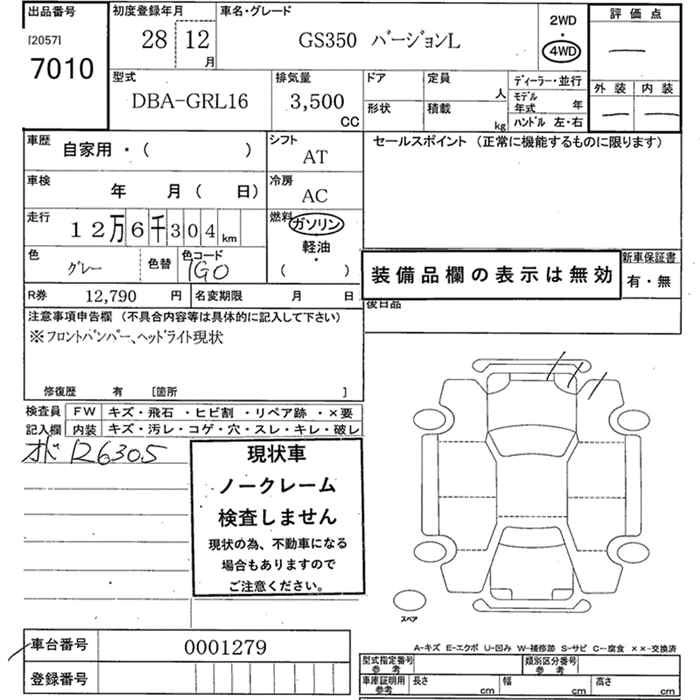 出品番号 初度登録年月 車名・グレード 2WD 評価点
[2057] 28 12 月 GS350 バージョンL 4WD —
7010
型式 排気量 ドア 定員 人 ディーラー・並行 外装 内装
DBA-GRL16 3,500 CC 形状 積載 kg モデル年式 年 — —
ハンドル 左・右
車歴 自家用・( ) シフト AT セールスポイント (正常に機能するものに限ります)
車検 年 月( 日) 冷房 AC
走行 12万6千304 km 燃料 ガソリン
軽油
・
( )
色 グレー 色替 色コード 1G0
装備品欄の表示は無効 新車保証書
有・無
R券 12,790 円 名変期限 月 日 後日品
注意事項申告欄 (不具合内容等は具体的に記入して下さい)
※フロントバンパー、ヘッドライト現状
修復歴 有 [箇所 ]
検査員 FW キズ・飛石・ヒビ割・リペア跡・×要
記入欄 内装 キズ・汚レ・コゲ・穴・スレ・キレ・破レ
オド 126305
現状車
ノークレーム
検査しません
現状の為、不動車になる
場合もありますので
ご注意ください。
スペア
車台番号 0001279
登録番号
A-キズ E-エクボ U-凹み W-補修跡 S-サビ C-腐食 ××-交換済
型式指定番号 参考 類別区分番号 参考
車庫証明用 参考 長さ cm 幅 cm 高さ cm